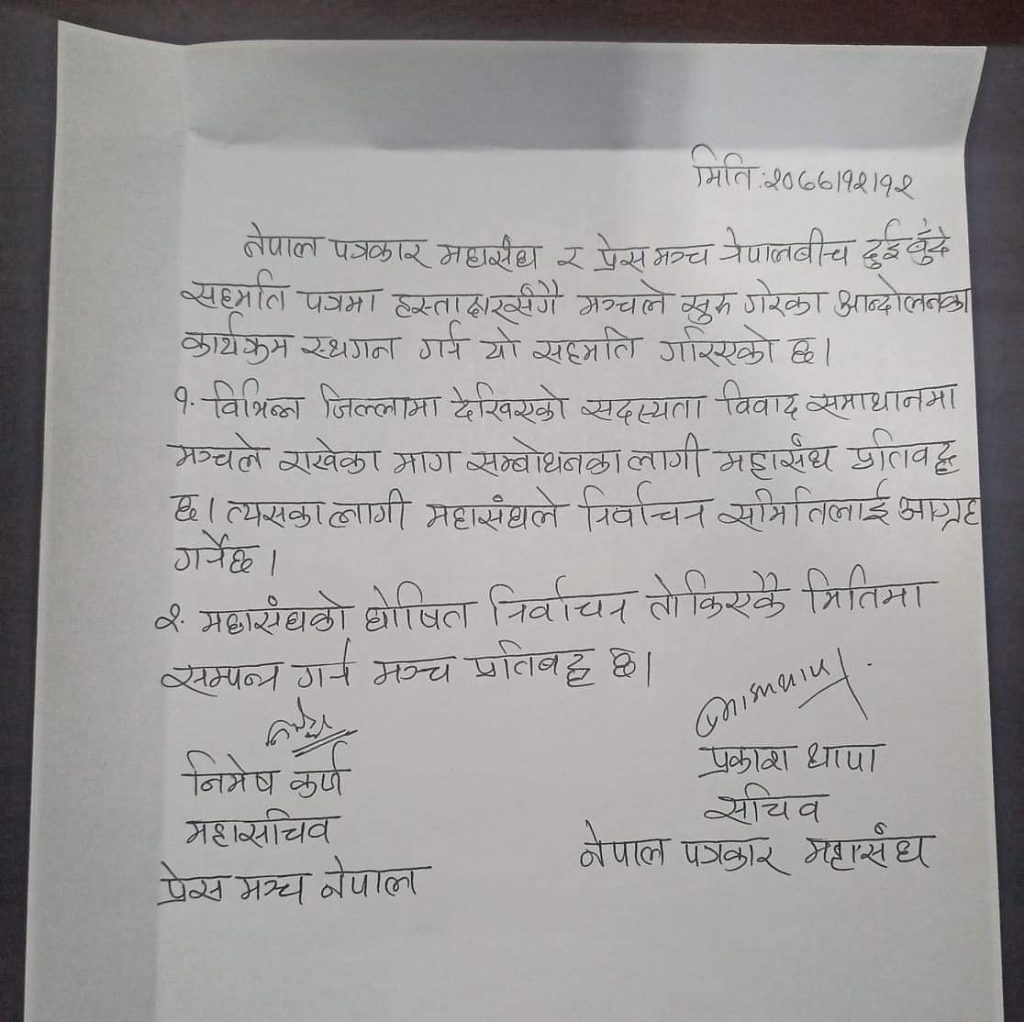 मिति:२०७७।१२।१२
नेपाल पत्रकार महासंघ र प्रेस मञ्च नेपालबीच दुईबुँदे
सहमति पत्रमा हस्ताक्षरसँगै मञ्चले सुरु गरेका आन्दोलनका
कार्यक्रम स्थगन गर्न यो सहमति गरिएको छ।
१. विभिन्न जिल्लामा देखिएको सदस्यता विवाद समाधानमा
मञ्चले राखेका माग सम्बोधनका लागी महासंघ प्रतिवद्ध
छ। त्यसका लागी महासंघले निर्वाचन समितिलाई आग्रह
गर्नेछ।
२. महासंघको घोषित निर्वाचन तोकिएकै मितिमा
सम्पन्न गर्न मञ्च प्रतिबद्ध छ।
निमेष कर्ण
महासचिव
प्रेस मञ्च नेपाल
प्रकाश थापा
सचिव
नेपाल पत्रकार महासंघ